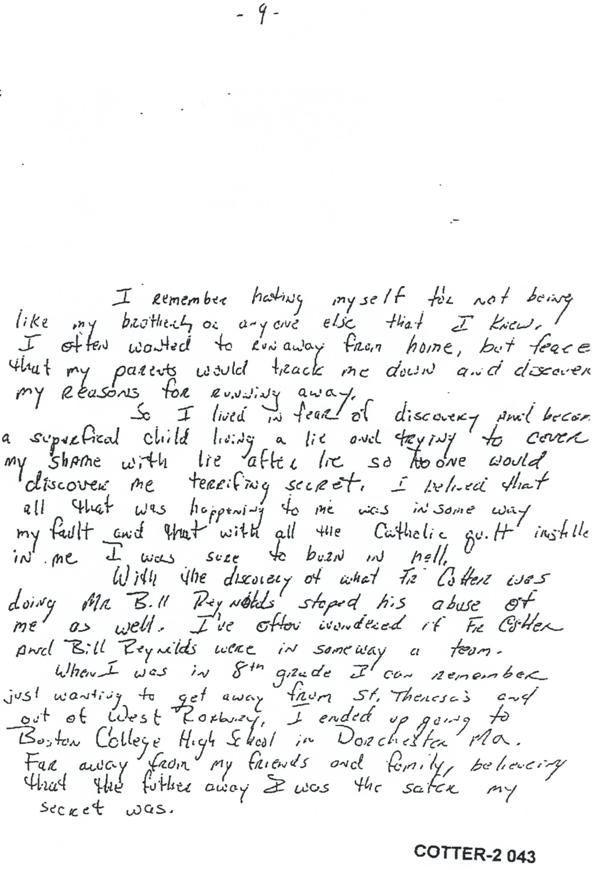 - 9 -
I remember hating myself for not being
like my brothers or anyone else that I knew.
I often wanted to run away from home, but feare
that my parents would track me down and discover
my reasons for running away.
So I lived in fear of discovery and becam
a superfical child living a lie and trying to cover
my shame with lie after lie so no one would
discover me terrifing secret. I belived that
all that was happening to me was in some way
my fault and that with all the Catholic guilt instille
in me I was sure to burn in hell.
With the discovery of what Fr Cotter was
doing Mr Bill Reynolds stoped his abuse of
me as well. I've often wondered if Fr Cotter
and Bill Reynolds were in someway a team.
When I was in 8th grade I can remember
just wanting to get away from St. Theresa's and
out of West Roxbury. I ended up going to
Boston College High School in Dorchester Ma.
Far away from my friends and family, believeing
that the futher away I was the safer my
secret was.
COTTER-2 043